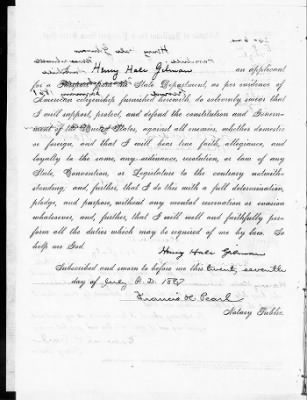 Henry Hale Gilman an applicant
for a Passport from the State Department, as per evidence of
American citizenship furnished herewith, do solemnly swear that
I will support, protect, and defend the constitution and Govern-
ment of the United States, against all enemies, whether domestic
or foreign, and that I will bear true faith, allegiance, and
loyalty to the same, any ordinance, resolution, or law of any
State, Convention, or Legislature to the contrary notwith-
standing; and, further, that I do this with a full determination,
pledge, and purpose, without any mental reservation or evasion
whatsoever, and, further, that I will well and faithfully per-
form all the duties which may be required of me by law. So
help me God
Henry Hale Gilman
Subscribed and sworn to before me this twenty seventh
day of July A. D. 188
Francis H. Pearl
Notary Public